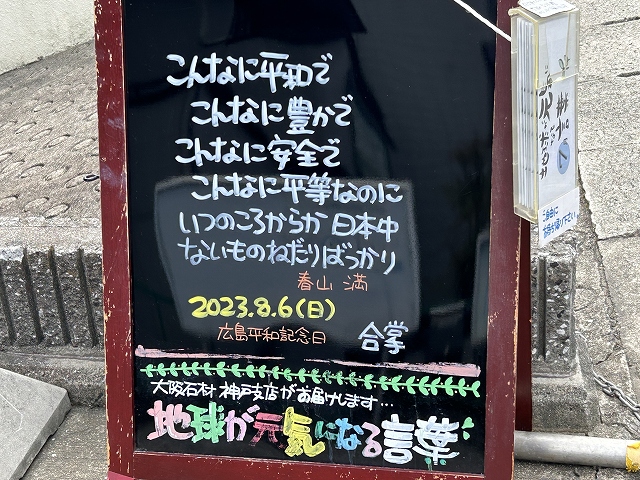 こんなに平和で
こんなに豊かで
こんなに安全で
こんなに平等なのに
いつのころからか 日本中
ないものねだりばっかり
春山 満
2023.8.6(日)
広島平和記念日
合掌
大阪石材 神戸支店がお届けします…
地球が元気になる言葉
ご自由に
お持ち帰り下さい